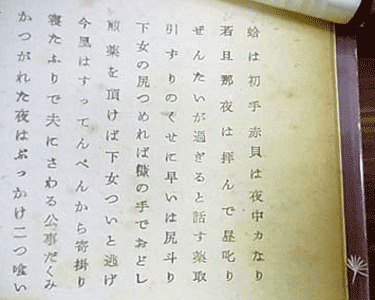 蛤は初手赤貝は夜中カなり
若旦那夜は拝んで昼叱り
ぜんたいが過ぎると話す薬取
引ずりのくせに早いは尻斗り
下女の尻つめれば糠の手でおどし
煎薬を頂けば下女ついと逃げ
今風はすってんぺんから寄掛り
寝たふりで夫にさわる公事だくみ
かつがれた夜はぶっかけ二つ喰い